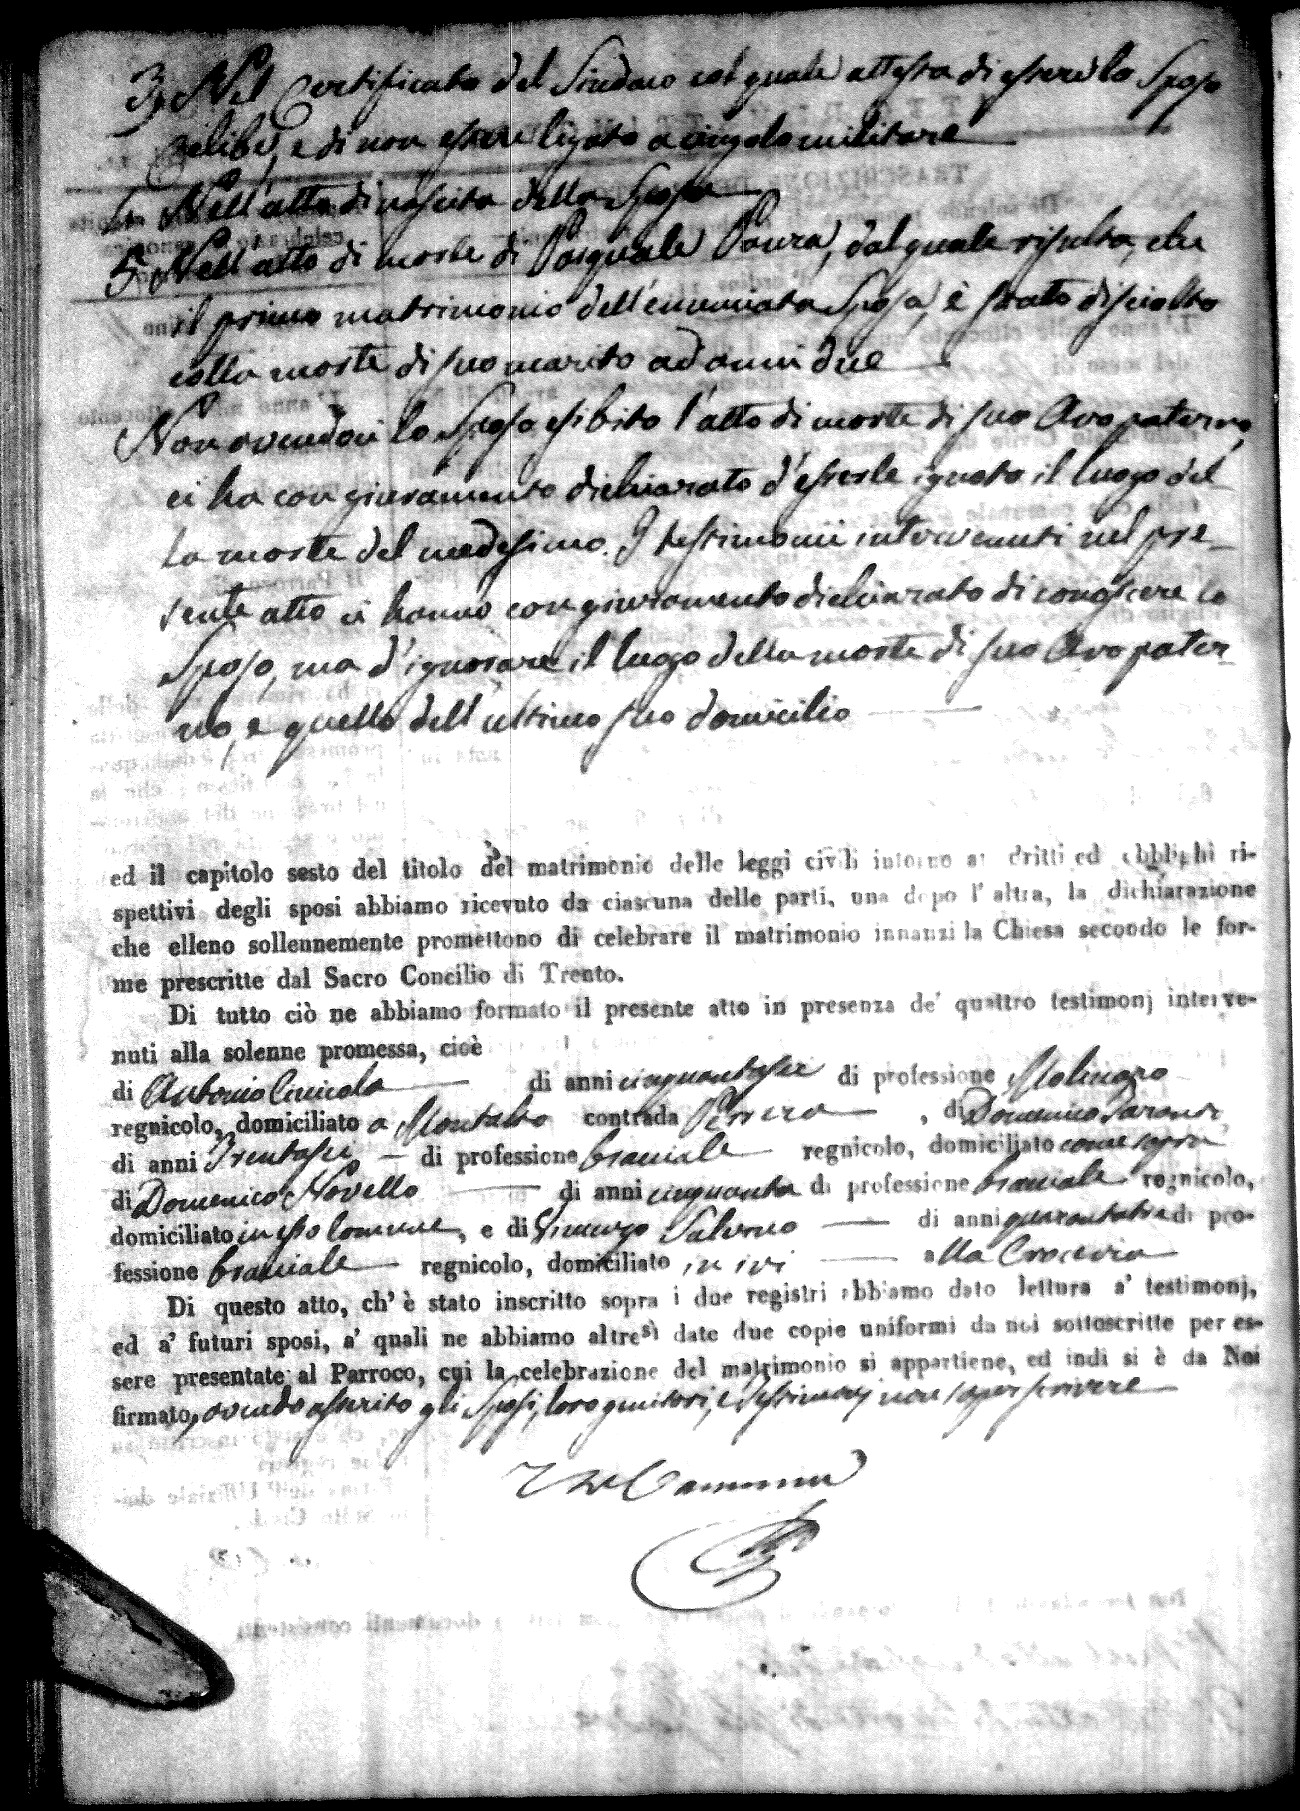 3. Nel Certificato del Sindaco col quale attesta di essere lo Sposo
celibe, e di non essere ligato a cingolo militare
4. Nell'atto di nascita della Sposa
5. Nell'atto di morte di Pasquale Paura, dal quale risulta, che
il primo matrimonio dell'enunciata Sposa, è stato disciolto
colla morte di suo marito ad anni due
Non avendoci lo Sposo esibito l'atto di morte di suo Avo paterno,
ci ha con giuramento dichiarato d'esserle ignoto il luogo del
la morte del medesimo. I testimonii intervenuti nel pre-
sente atto ci hanno con giuramento dichiarato di conoscere lo
Sposo, ma d'ignorare il luogo della morte di suo Avo pater-
no, e quello dell'ultimo suo domicilio
ed il capitolo sesto del titolo del matrimonio delle leggi civili intorno ai dritti ed obblighi ri-
spettivi degli sposi abbiamo ricevuto da ciascuna delle parti, una dopo l'altra, la dichiarazione
che elleno sollennemente promettono di celebrare il matrimonio innanzi la Chiesa secondo le for-
me prescritte dal Sacro Concilio di Trento.
Di tutto ciò ne abbiamo formato il presente atto in presenza de' quattro testimonj interve-
nuti alla solenne promessa, cioè
di Antonio di anni cinquantasei di professione Molinaro
regnicolo, domiciliato a Montalto contrada , di Domenico
di anni Trentasei di professione bracciale regnicolo, domiciliato come sopra
di Domenico Novello di anni cinquanta di professione bracciale regnicolo,
domiciliato in esso Comune, e di Salerno di anni quarantatre di pro-
fessione bracciale regnicolo, domiciliato in ivi alla Crocevia
Di questo atto, ch'è stato inscritto sopra i due registri abbiamo dato lettura a' testimonj,
ed a' futuri sposi, a' quali ne abbiamo altresì date due copie uniformi da noi sottoscritte per es-
sere presentate al Parroco, cui la celebrazione del matrimonio si appartiene, ed indi si è da Noi
firmato, avendo asserito gli Sposi, loro genitori, e testimonj non saper scrivere